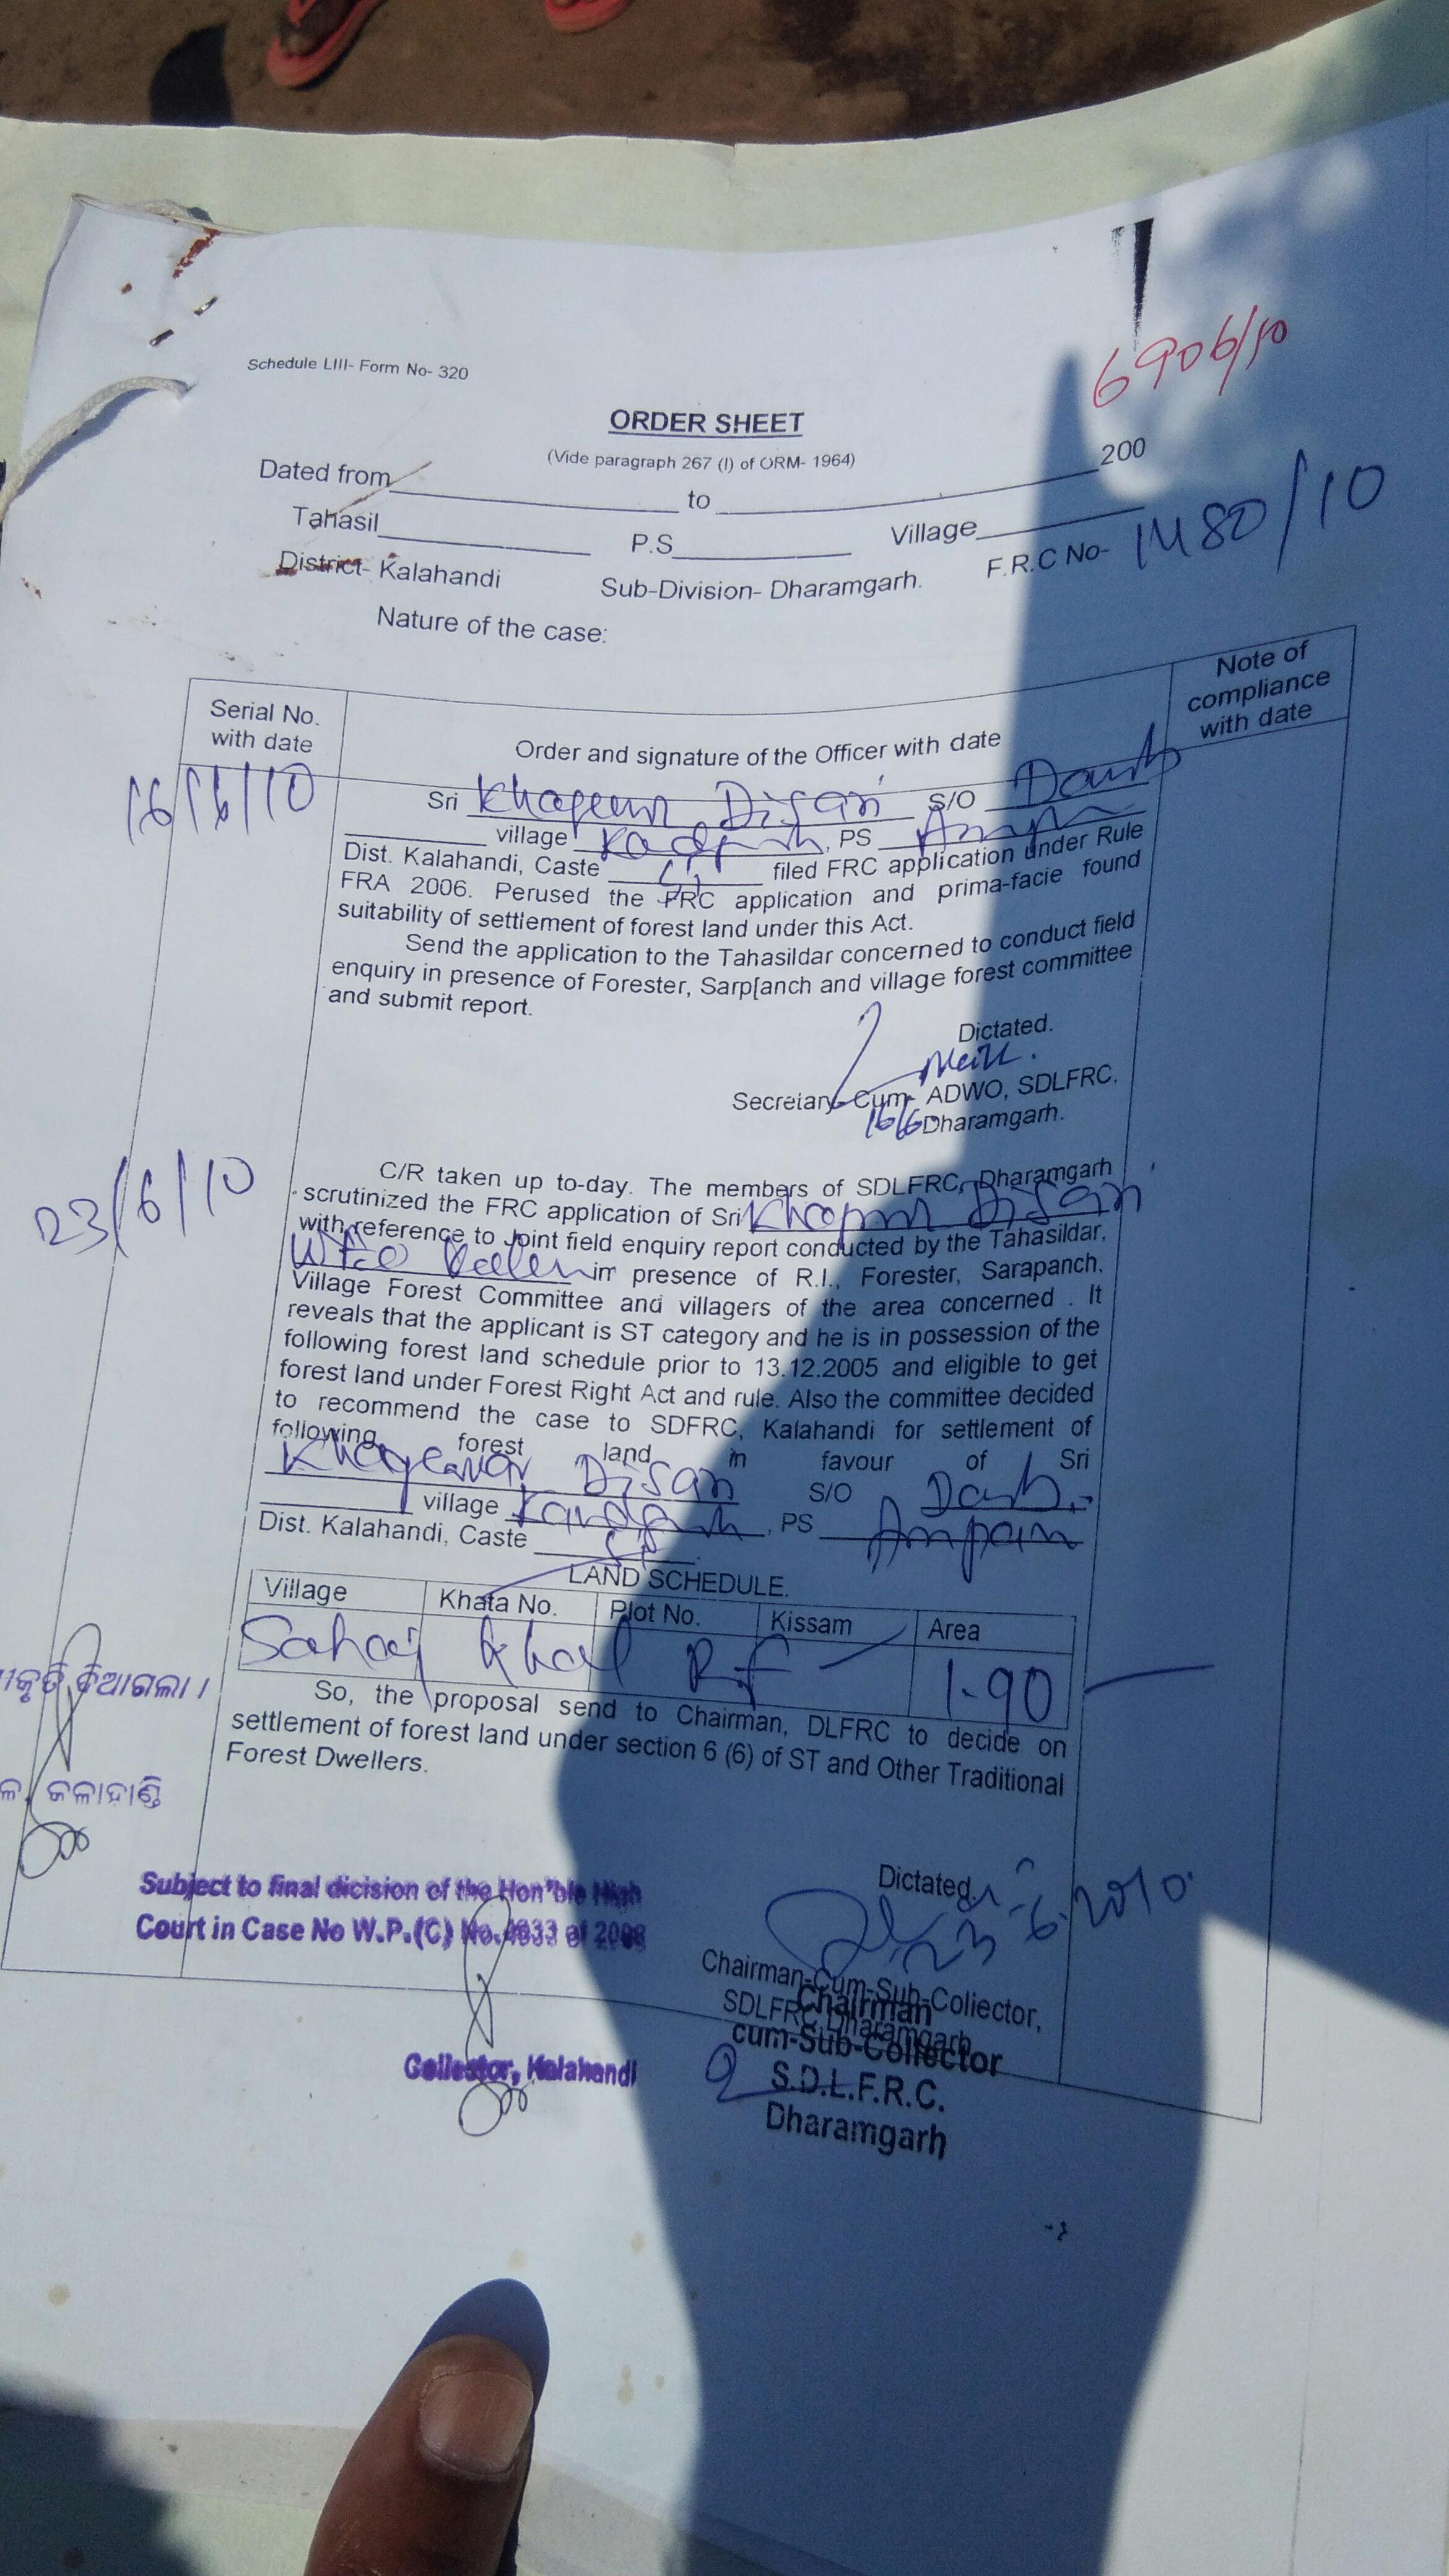 6906/10
Schedule LIII- Form No- 320
ORDER SHEET
(Vide paragraph 267 (I) of ORM- 1964)
Dated from to 200
Tahasil P.S Village
District- Kalahandi Sub-Division- Dharamgarh. F.R.C No- 1480/10
Nature of the case:
Serial No. with date
Order and signature of the Officer with date
Note of compliance with date
16/6/10
Sri Disari S/O
village , PS
Dist. Kalahandi, Caste filed FRC application under Rule
FRA 2006. Perused the FRC application and prima-facie found
suitability of settlement of forest land under this Act.
Send the application to the Tahasildar concerned to conduct field
enquiry in presence of Forester, Sarp[anch and village forest committee
and submit report.
Dictated.
Secretary-Cum- ADWO, SDLFRC,
16/6 Dharamgarh.
23/6/10
C/R taken up to-day. The members of SDLFRC, Dharamgarh
scrutinized the FRC application of Sri Disari
with reference to Joint field enquiry report conducted by the Tahasildar,
in presence of R.I., Forester, Sarapanch,
Village Forest Committee and villagers of the area concerned . It
reveals that the applicant is ST category and he is in possession of the
following forest land schedule prior to 13.12.2005 and eligible to get
forest land under Forest Right Act and rule. Also the committee decided
to recommend the case to SDFRC, Kalahandi for settlement of
following forest land in favour of Sri
Disari S/O
village , PS Ampani
Dist. Kalahandi, Caste
LAND SCHEDULE.
Village Khata No. Plot No. Kissam Area
Sahaj khal R.f 1.90
So, the proposal send to Chairman, DLFRC to decide on
settlement of forest land under section 6 (6) of ST and Other Traditional
Forest Dwellers.
ଦିଆଗଲା ।
କଳାହାଣ୍ଡି
Subject to final dicision of the Hon'ble High
Court in Case No W.P.(C) No.4933 of 2008
Collector, Kalahandi
Dictated.
23-6-2010
Chairman-Cum-Sub-Collector,
SDLFRC, Dharamgarh
Chairman
cum-Sub-Collector
S.D.L.F.R.C.
Dharamgarh